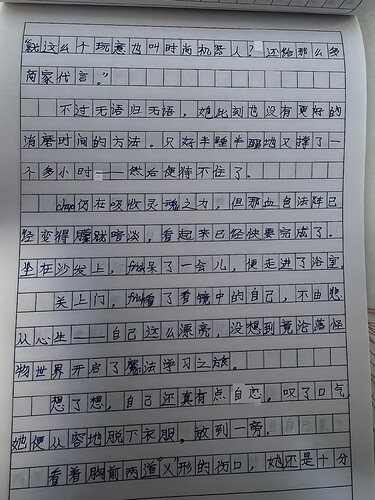 就这么个玩意也叫时尚机器人？还给那么多
商家代言。”
不过无语归无语，她此刻也没有更好的
消磨时间的方法。只好半睡半醒地又撑了一
个多小时——然后便待不住了。
仍在吸收灵魂之力，但那血色法阵已
经变得朦胧暗淡，看起来已经快要完成了。
坐在沙发上，呆了一会儿，便走进了浴室。
关上门，看了看镜中的自己，不由悲
从心生——自己这么漂亮，没想到竟沦落在
物世界开启了魔法学习之旅。
想了想，自己还真有点自恋。叹了口气，
她便从容地脱下衣服。放到一旁。
看着胸前两道“X”形的伤口，她还是十分